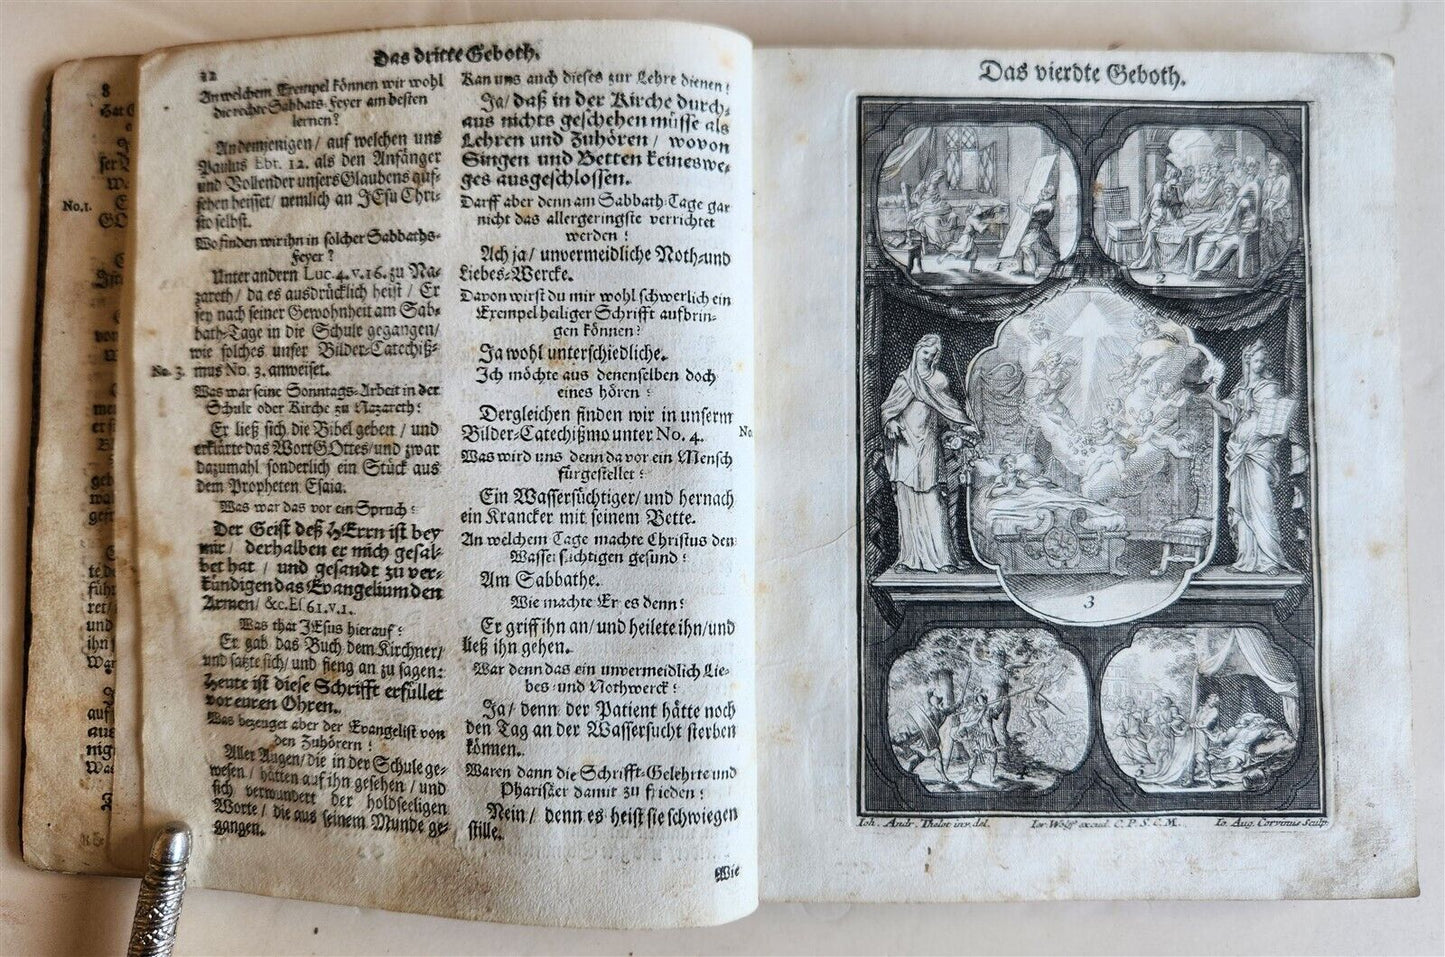 Das dritte Geboth.
12
An welchem Exempel können wir wohl
die rechte Sabbats-Feyer am besten
lernen?
An demjenigen/ auf welchen uns
Paulus Ebr. 12. als den Anfänger
und Vollender unsers Glaubens auf-
sehen heisset/ nemlich an JEsu Chri-
sto selbst.
Wo finden wir ihn in solcher Sabbaths-
Feyer?
Unter andern Luc. 4. v. 16. zu Na-
zareth/ da es ausdrücklich heist/ Er
sey nach seiner Gewohnheit am Sab-
bath-Tage in die Schule gegangen/
wie solches unser Bilder-Catechiß-
No. 3. mus No. 3. anweiset.
Was war seine Sonntags-Arbeit in der
Schule oder Kirche zu Nazareth?
Er ließ sich die Bibel geben/ und
erklärte das Wort GOttes/ und zwar
dazumahl sonderlich ein Stück aus
dem Propheten Esaia.
Was war das vor ein Spruch?
Der Geist deß HErrn ist bey
mir/ derhalben er mich gesal-
bet hat/ und gesandt zu ver-
kündigen das Evangelium den
Armen/ &c. Es 61. v. 1.
Was that JEsus hierauf?
Er gab das Buch dem Kirchner/
und satzte sich/ und fieng an zu sagen:
Heute ist diese Schrifft erfüllet
vor euren Ohren.
Was bezeuget aber der Evangelist von
den Zuhörern?
Aller Augen/ die in der Schule ge-
wesen/ hätten auf ihn gesehen/ und
sich verwundert der holdseeligen
Worte/ die aus seinem Munde ge-
gangen.
Kan uns auch dieses zur Lehre dienen?
Ja/ daß in der Kirche durch-
aus nichts geschehen müsse als
Lehren und Zuhören/ wovon
Singen und Betten keineswe-
ges ausgeschlossen.
Darff aber denn am Sabbath-Tage gar
nicht das allergeringste verrichtet
werden?
Ach ja/ unvermeidliche Noth- und
Liebes-Wercke.
Davon wirst du mir wohl schwerlich ein
Exempel heiliger Schrifft aufbrin-
gen können?
Ja wohl unterschiedliche.
Ich möchte aus denenselben doch
eines hören?
Dergleichen finden wir in unserm
Bilder-Catechißmo unter No. 4. No
Was wird uns denn da vor ein Mensch
fürgestellet?
Ein Wassersüchtiger/ und hernach
ein Krancker mit seinem Bette.
An welchem Tage machte Christus den
Wassersüchtigen gesund?
Am Sabbathe.
Wie machte Er es denn?
Er griff ihn an/ und heilete ihn/ und
ließ ihn gehen.
War denn das ein unvermeidlich Lie-
bes- und Nothwerck?
Ja/ denn der Patient hätte noch
den Tag an der Wassersucht sterben
können.
Waren dann die Schrifft-Gelehrte und
Pharisäer damit zu frieden?
Nein/ denn es heist sie schwiegen
stille.
Wie
8
No. 1.
Das vierdte Geboth.
1
2
3
4
5
Ioh. Andr. Thelot inv. del.
Ier. Wolff excud. C. P. S. C. M.
Io. Aug. Corvinus Sculp.